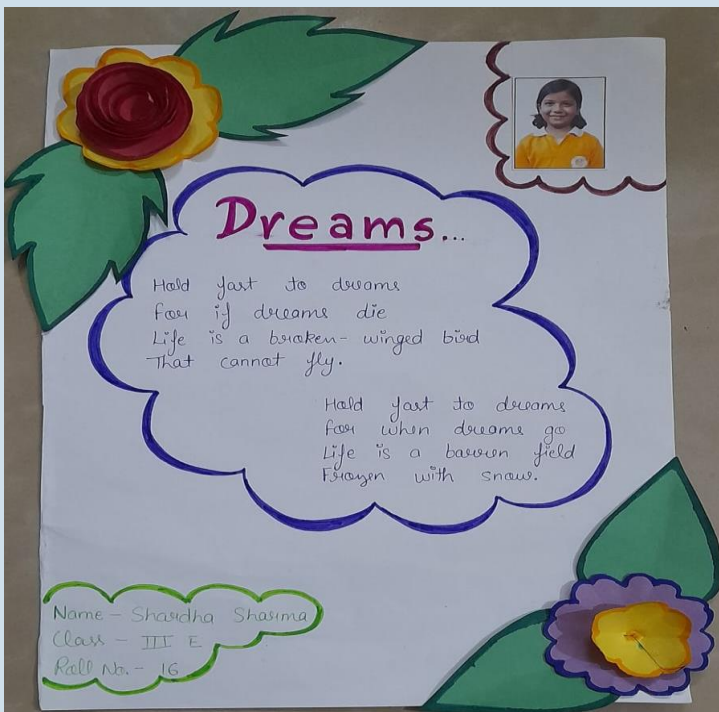 Dreams...
Hold fast to dreams
For if dreams die
Life is a broken-winged bird
That cannot fly.
Hold fast to dreams
For when dreams go
Life is a barren field
Frozen with snow.
Name - Shardha Sharma
Class - III E
Roll No. - 16